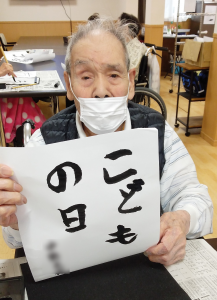 こども
の日